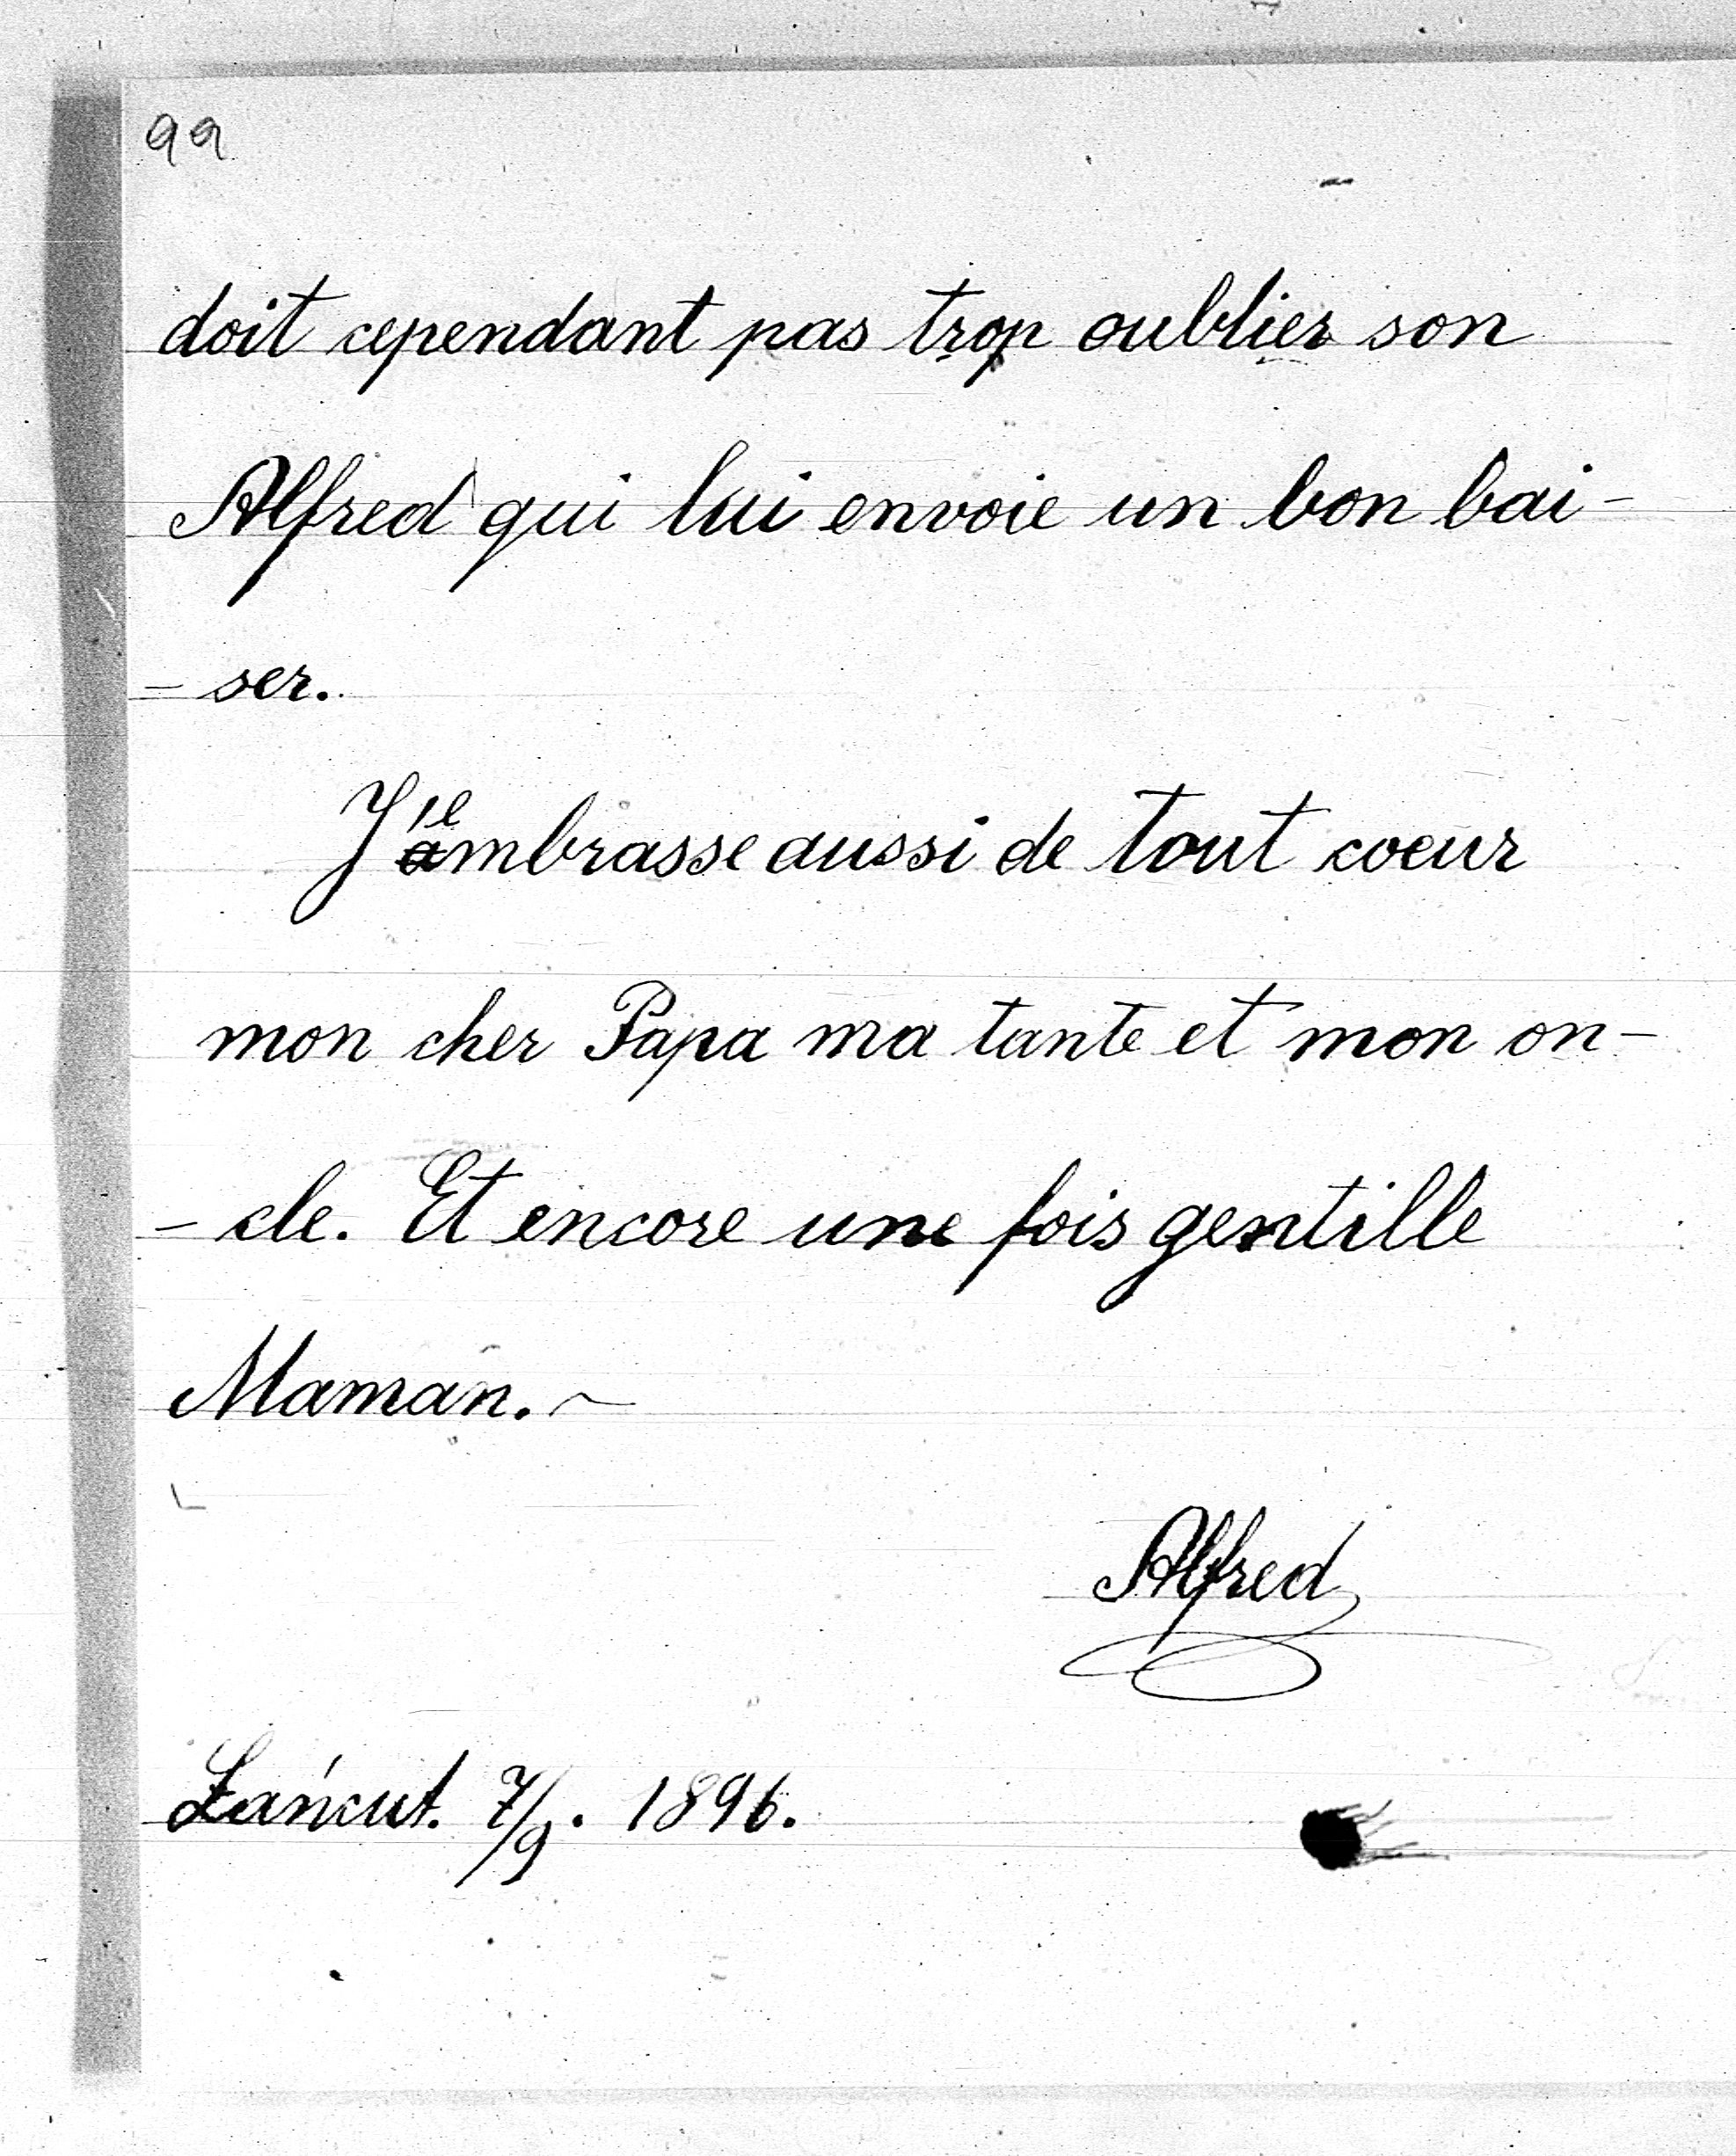 99
doit cependant pas trop oublier son
Alfred qui lui envoie un bon bai-
- ser.
J'embrasse aussi de tout coeur
mon cher Papa ma tante et mon on-
- cle. Et encore une fois gentille
Maman. ~
Alfred
Łańcut. 7/9. 1896.